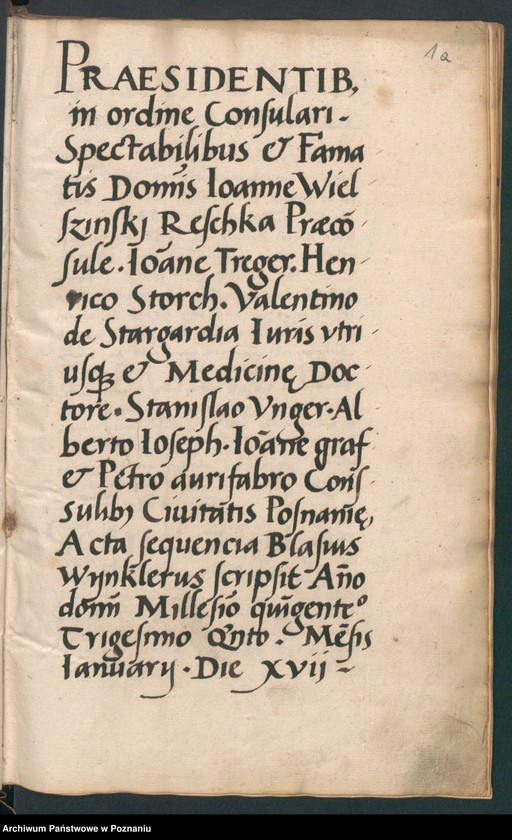 1a
PRAESIDENTIB,
in ordine Consulari -
Spectabilibus & Fama
tis Domīs Ioanne Wiel
szinskj Reschka Præcō
sule. Ioāne Treger. Hen
rico Storch. Valentino
de Stargardia Iuris vtri
usqȝ & Medicinę Doc
tore. Stanislao Vnger. Al
berto Ioseph. Ioāne graf
& Petro aurifabro Cons
sulibȝ Ciuitātis Posnamē,
Acta sequencia Blasius
Wynklerus scripsit Año
domī Millesīo quīgenteº
Trigesimo Qnto. Mēsis
Ianuarij. Die xvij -
Archiwum Państwowe w Poznaniu